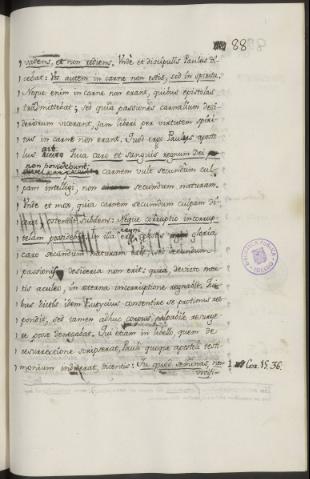 88
vadens, et non rediens. Unde et discipulis Paulus di-
cebat: Vos autem in carne non estis, sed in spiritu.
Neque enim in carne non erant, quibus epistolas
transmittebat; sed quia passiones carnalium desi-
deriorum vicerant, jam liberi per virtutem spiri-
tus in carne non erant. Quod ergo Paulus aposto-
lus ait Quia caro et sanguis regnum Dei
non possidebunt; carnem vult secundum cul-
pam intelligi, non secundum naturam.
Unde et mox quia carnem secundum culpam di-
ceret ostendit subdens: Neque corruptio incorrup-
telam possidebit. In illa ergo caelestis regni gloria,
caro secundum naturam erit, sed secundum
passionis desideria non erit: quia, devicto mor-
tis aculeo, in aeterna incorruptione regnabit. Qui-
bus dictis idem Eutychius consentire se protinus res-
pondit, sed tamen adhuc corpus palpabile resurge-
re posse denegabat. Qui etiam in libello quem de
resurrectione scripserat, Pauli quoque apostoli testi-
monium indiderat, dicentis: Tu quod seminas, non
vivifi-
Cor. 15. 36.